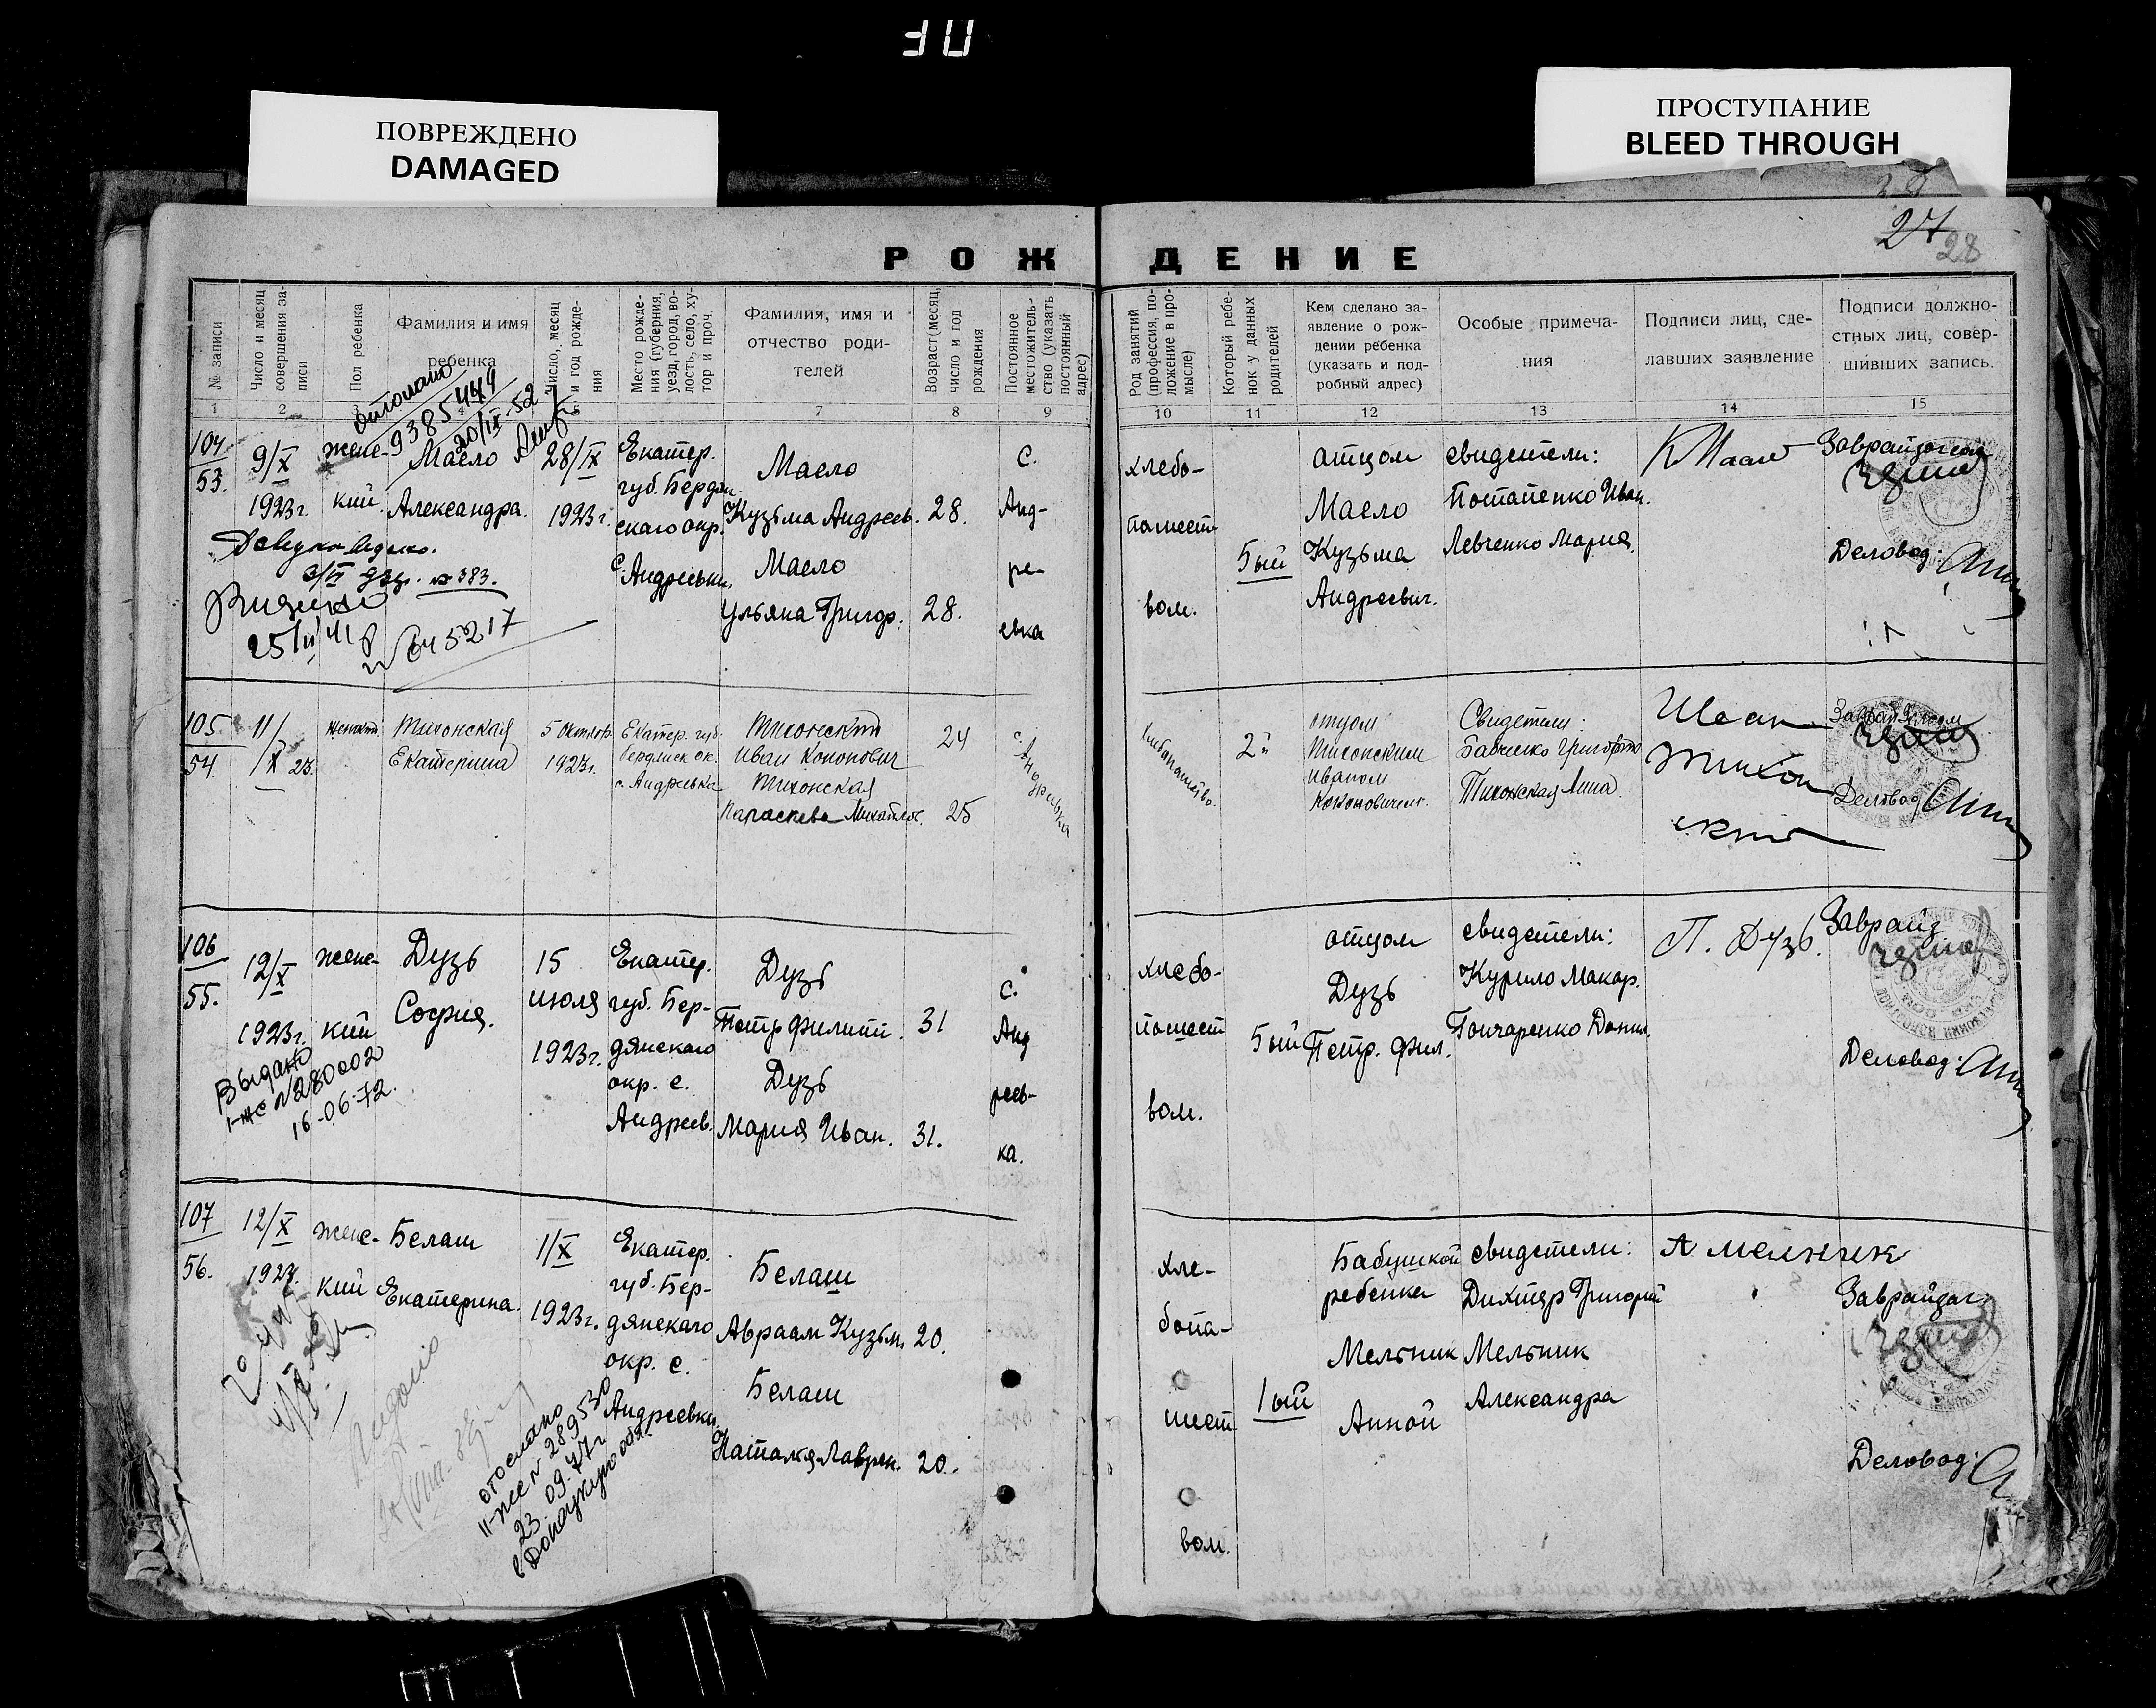 ПОВРЕЖДЕНО
DAMAGED
ПРОСТУПАНИЕ
BLEED THROUGH
27
28
РОЖДЕНИЕ
№ записи
Число и месяц совершения записи
Пол ребенка
Фамилия и имя ребенка
Число, месяц и год рождения
Место рождения (губерния, уезд, город, волость, село, хутор и проч.
Фамилия, имя и отчество родителей
Возраст (месяц, число и год рождения
Постоянное местожительство (указать постоянный адрес)
Род занятий (профессия, положение в промысле)
Который ребенок у данных родителей
Кем сделано заявление о рождении ребенка (указать и подробный адрес)
Особые примечания
Подписи лиц, сделавших заявление
Подписи должностных лиц, совершивших запись.
1 2 4 7 8 9 10 11 12 13 14 15
938544
20/IX-52
104
53.
9/X
1923г.
женский.
Маело
Александра.
28/IX
1923г.
Екатер.
губ. Бердян
скаго окр.
с. Андреевки
Маело
Кузьма Андреев. 28.
Маело
Ульяна Григор. 28.
с.
Анд-
ре-
евка
хлебо-
пашест
вом.
5ый
отцом
Маело
Кузьма
Андреевич.
свидетели:
Потапенко Иван.
Левченко Мария.
К Маело
Деловод.
№ 383.
645217
105
54.
11/X 23.
женский
Тихонская
Екатерина
5 октября
1923г.
Екатер. губ.
Бердянск ок.
с. Андреевка
Тихонский
Иван Кононович
24
Тихонская
Параскева Михайлов.
25
с. Андреевка
хлебопашество.
2й
отцом
Тихонским
Иваном
Кононовичем.
Свидетели:
Григорий
Тихонская Анна
Иван
Тихон
ский
Деловод
106
55.
12/X
1923г.
женский
Дузь
София.
15
июля
1923г.
Екатер.
губ. Бер-
дянскаго
окр. с.
Андреев.
Дузь
Петр Филип. 31
Дузь
Мария Иван. 31.
с.
Анд
реев-
ка.
хлебо-
пашест
вом.
5ый
отцом
Дузь
Петр. Фил.
свидетели:
Курило Макар.
Гончаренко Данил.
П. Дузь.
Заврайз
Деловод.
Выдано
I-жс №280002
16-06-72.
107
56.
12/X
женский
Белаш
Екатерина.
1/X
1923г.
Екатер.
губ. Бер-
дянскаго
окр. с.
Андреевки
Белаш
Авраам Кузьм. 20.
Белаш
Наталья Лаврен. 20.
хле-
бопа-
шест
вом.
1ый
Бабушкой
ребенка
Мельник
Анной
свидетели:
Дихтяр Григорий
Мельник
Александра
А мельник
Завройзаг.
Деловод.
отослано
II-жс № 28953
23.09.77г